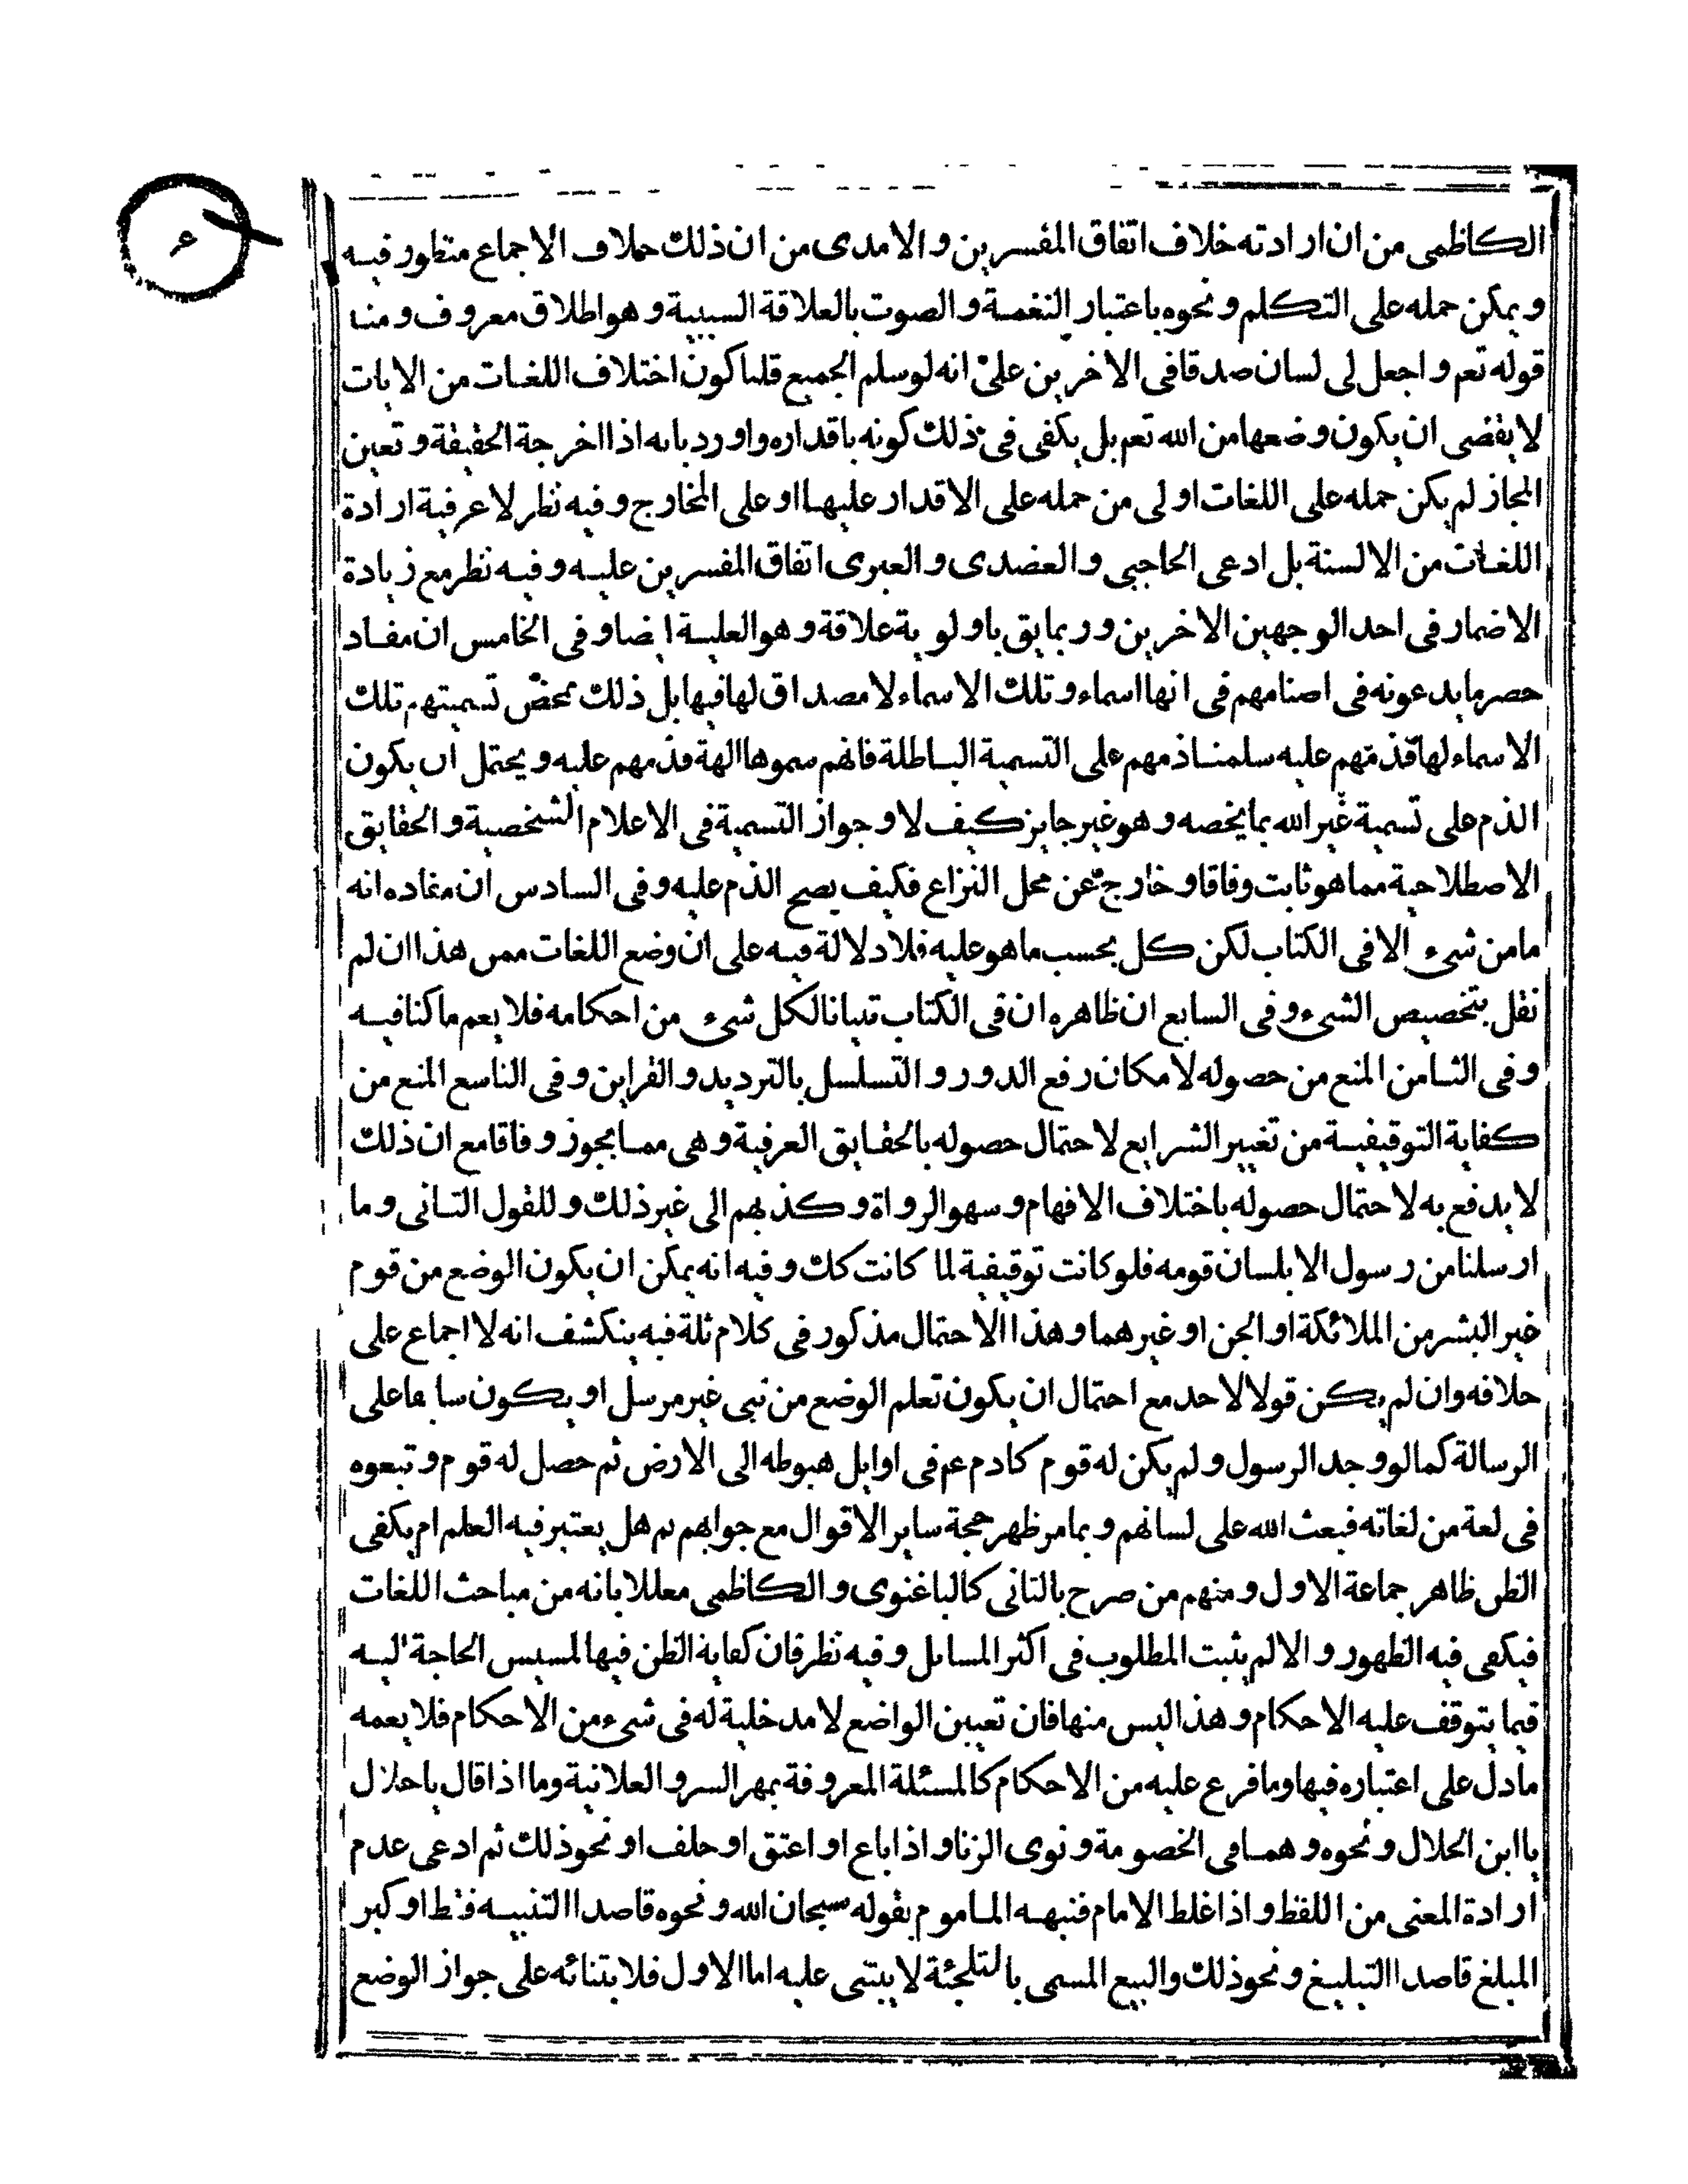 الكاظمى من ان ارادته خلاف اتفاق المفسرين والامدى من ان ذلك خلاف الاجماع منظور فيه
ويمكن حمله على التكلم ونحوه باعتبار النغمة والصوت بالعلاقة السببية وهو اطلاق معروف ومنه
قوله تعم واجعل لى لسان صدقا فى الاخرين على انه لو سلم الجميع قلنا كون اختلاف اللغات من الايات
لا يقضى ان يكون وضعها من الله تعم بل يكفى فى ذلك كونه باقداره واورد بانه اذا اخرجة الحقيقة وتعين
المجاز لم يكن حمله على اللغات اولى من حمله على الاقدار عليها او على المخارج وفيه نظر لاعرفية ارادة
اللغات من الالسنة بل ادعى الحاجبى والعضدى والعبرى اتفاق المفسرين عليه وفيه نظر مع زيادة
الاضمار فى احد الوجهين الاخرين وربما يق باولوية علاقة وهو العلية ايضا وفى الخامس ان مفاد
حصر ما يدعونه فى اصنامهم فى انها اسماء وتلك الاسماء لا مصداق لها فيها بل ذلك محض تسميتهم تلك
الاسماء لها فذمّهم عليه سلمنا ذمهم على التسمية الباطلة فانهم سموها الهة فذمهم عليه ويحتمل ان يكون
الذم على تسمية غير الله بما يخصه وهو غير جايز كيف لا وجواز التسمية فى الاعلام الشخصية والحقايق
الاصطلاحية مما هو ثابت وفاقا وخارج عن محل النزاع فكيف يصح الذم عليه وفى السادس ان مفاده انه
ما من شىء الا فى الكتاب لكن كل بحسب ما هو عليه فلا دلالة فيه على ان وضع اللغات ممن هذا ان لم
نقل بتخصيص الشىء وفى السابع ان ظاهره ان فى الكتاب تبيانا لكل شىء من احكامه فلا يعم ما كنا فيه
وفى الثامن المنع من حصوله لامكان رفع الدور والتسلسل بالترديد والقراين وفى التاسع المنع من
كفاية التوقيفية من تغيير الشرايع لاحتمال حصوله بالحقايق العرفية وهى مما يجوز وفاقا مع ان ذلك
لا يدفع به لاحتمال حصوله باختلاف الافهام وسهو الرواة وكذبهم الى غير ذلك وللقول الثانى وما
ارسلنا من رسول الا بلسان قومه فلو كانت توقيفية لما كانت كك وفيه انه يمكن ان يكون الوضع من قوم
غير البشر من الملائكة او الجن او غيرهما وهذا الاحتمال مذكور فى كلام ثلة فبه ينكشف انه لا اجماع على
خلافه وان لم يكن قولا لاحد مع احتمال ان يكون تعلم الوضع من نبى غير مرسل او يكون سابقا على
الرسالة كما لو وجد الرسول ولم يكن له قوم كادم عم فى اوايل هبوطه الى الارض ثم حصل له قوم وتبعوه
فى لغة من لغاته فبعث الله على لسانهم وبما مر ظهر حجة ساير الاقوال مع جوابهم ثم هل يعتبر فيه العلم ام يكفى
الظن ظاهر جماعة الاول ومنهم من صرح بالثانى كالباغنوى والكاظمى معللا بانه من مباحث اللغات
فيكفى فيه الظهور والا لم يثبت المطلوب فى اكثر المسايل وفيه نظر فان كفاية الظن فيها لمسيس الحاجة اليه
فيما يتوقف عليه الاحكام وهذا ليس منها فان تعيين الواضع لا مدخلية له فى شىء من الاحكام فلا يعمه
ما دل على اعتباره فيها وما فرع عليه من الاحكام كالمسئلة المعروفة بمهر السر والعلانية وما اذا قال يا حلال
يا ابن الحلال ونحوه وهما فى الخصومة ونوى الزنا واذا باع او اعتق او حلف او نحو ذلك ثم ادعى عدم
ارادة المعنى من اللفظ واذا غلط الامام فنبهه الماموم بقوله سبحان الله ونحوه قاصدا التنبيه فقط او كبر
المبلغ قاصدا التبليغ ونحو ذلك والبيع المسمى بالتلجئة لا يبتنى عليه اما الاول فلابتنائه على جواز الوضع